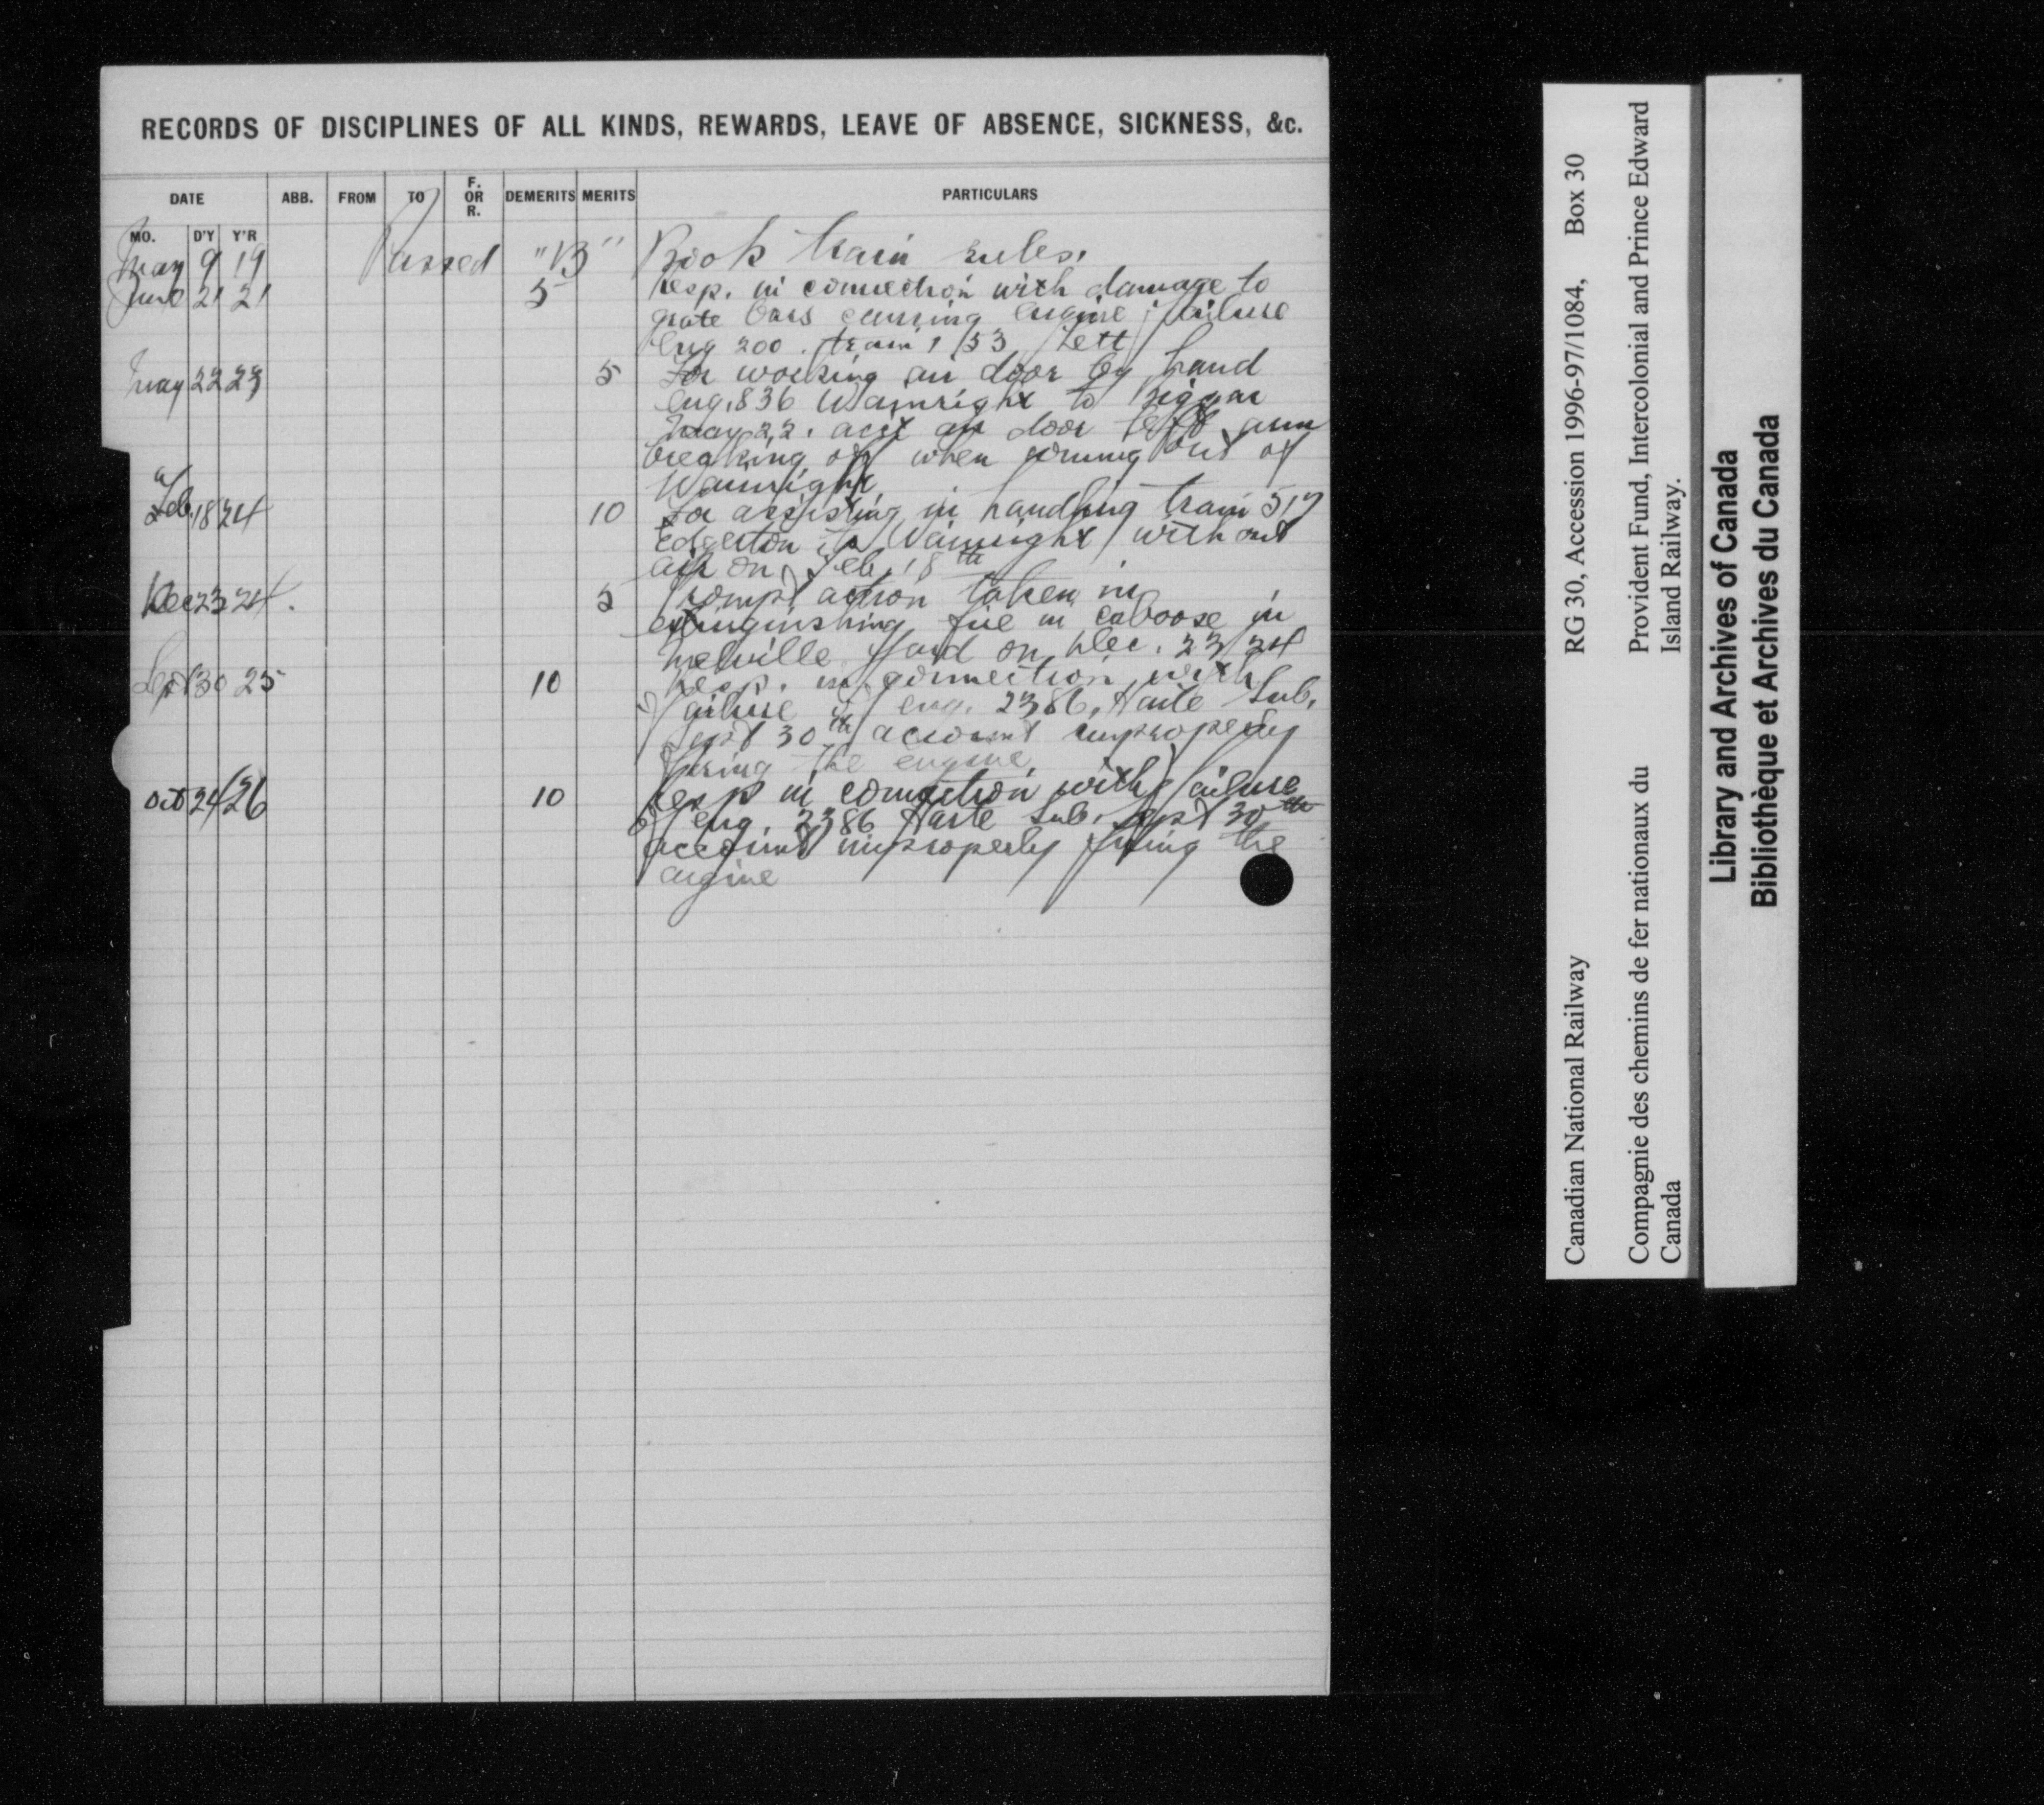 RECORDS OF DISCIPLINES OF ALL KINDS, REWARDS, LEAVE OF ABSENCE, SICKNESS, &c.
DATE ABB. FROM TO F. OR R. DEMERITS MERITS PARTICULARS
MO. D'Y Y'R
May 9 19 Passed "B" Book train rules.
June 21 21 5 Resp. in connection with damage to
grate bars causing engine failure
Eng 200. train 1/53
May 22 23 5 For working air door by hand
eng. 836 Wainwright to Biggar
May 22. acct air door arm
breaking off when coming out of
Wainwright
Feb. 18 24 10 For assisting in handling train 519
Edgerton to Wainwright without
air on Feb. 18th
Dec 23 24. 5 Prompt action taken in
extinguishing fire in caboose in
Melville Yard on Dec. 23/24
Sept 30 25 10 Resp. in connection with
failure of eng. 2386, Harte Sub.
Sept 30th account improperly
firing the engine.
Oct 24/26 10 Resp in connection with failure
of eng. 2386 Harte Sub. Sept 30th
account improperly firing the
engine
Canadian National Railway RG 30, Accession 1996-97/1084, Box 30
Compagnie des chemins de fer nationaux du Canada
Provident Fund, Intercolonial and Prince Edward Island Railway.
Library and Archives of Canada
Bibliothèque et Archives du Canada